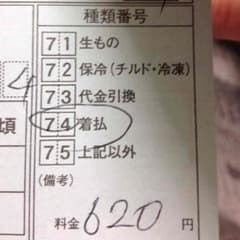 種類番号
71 生もの
72 保冷(チルド・冷凍)
73 代金引換
74 着払
75 上記以外
(備考)
料金 620 円
4
頃